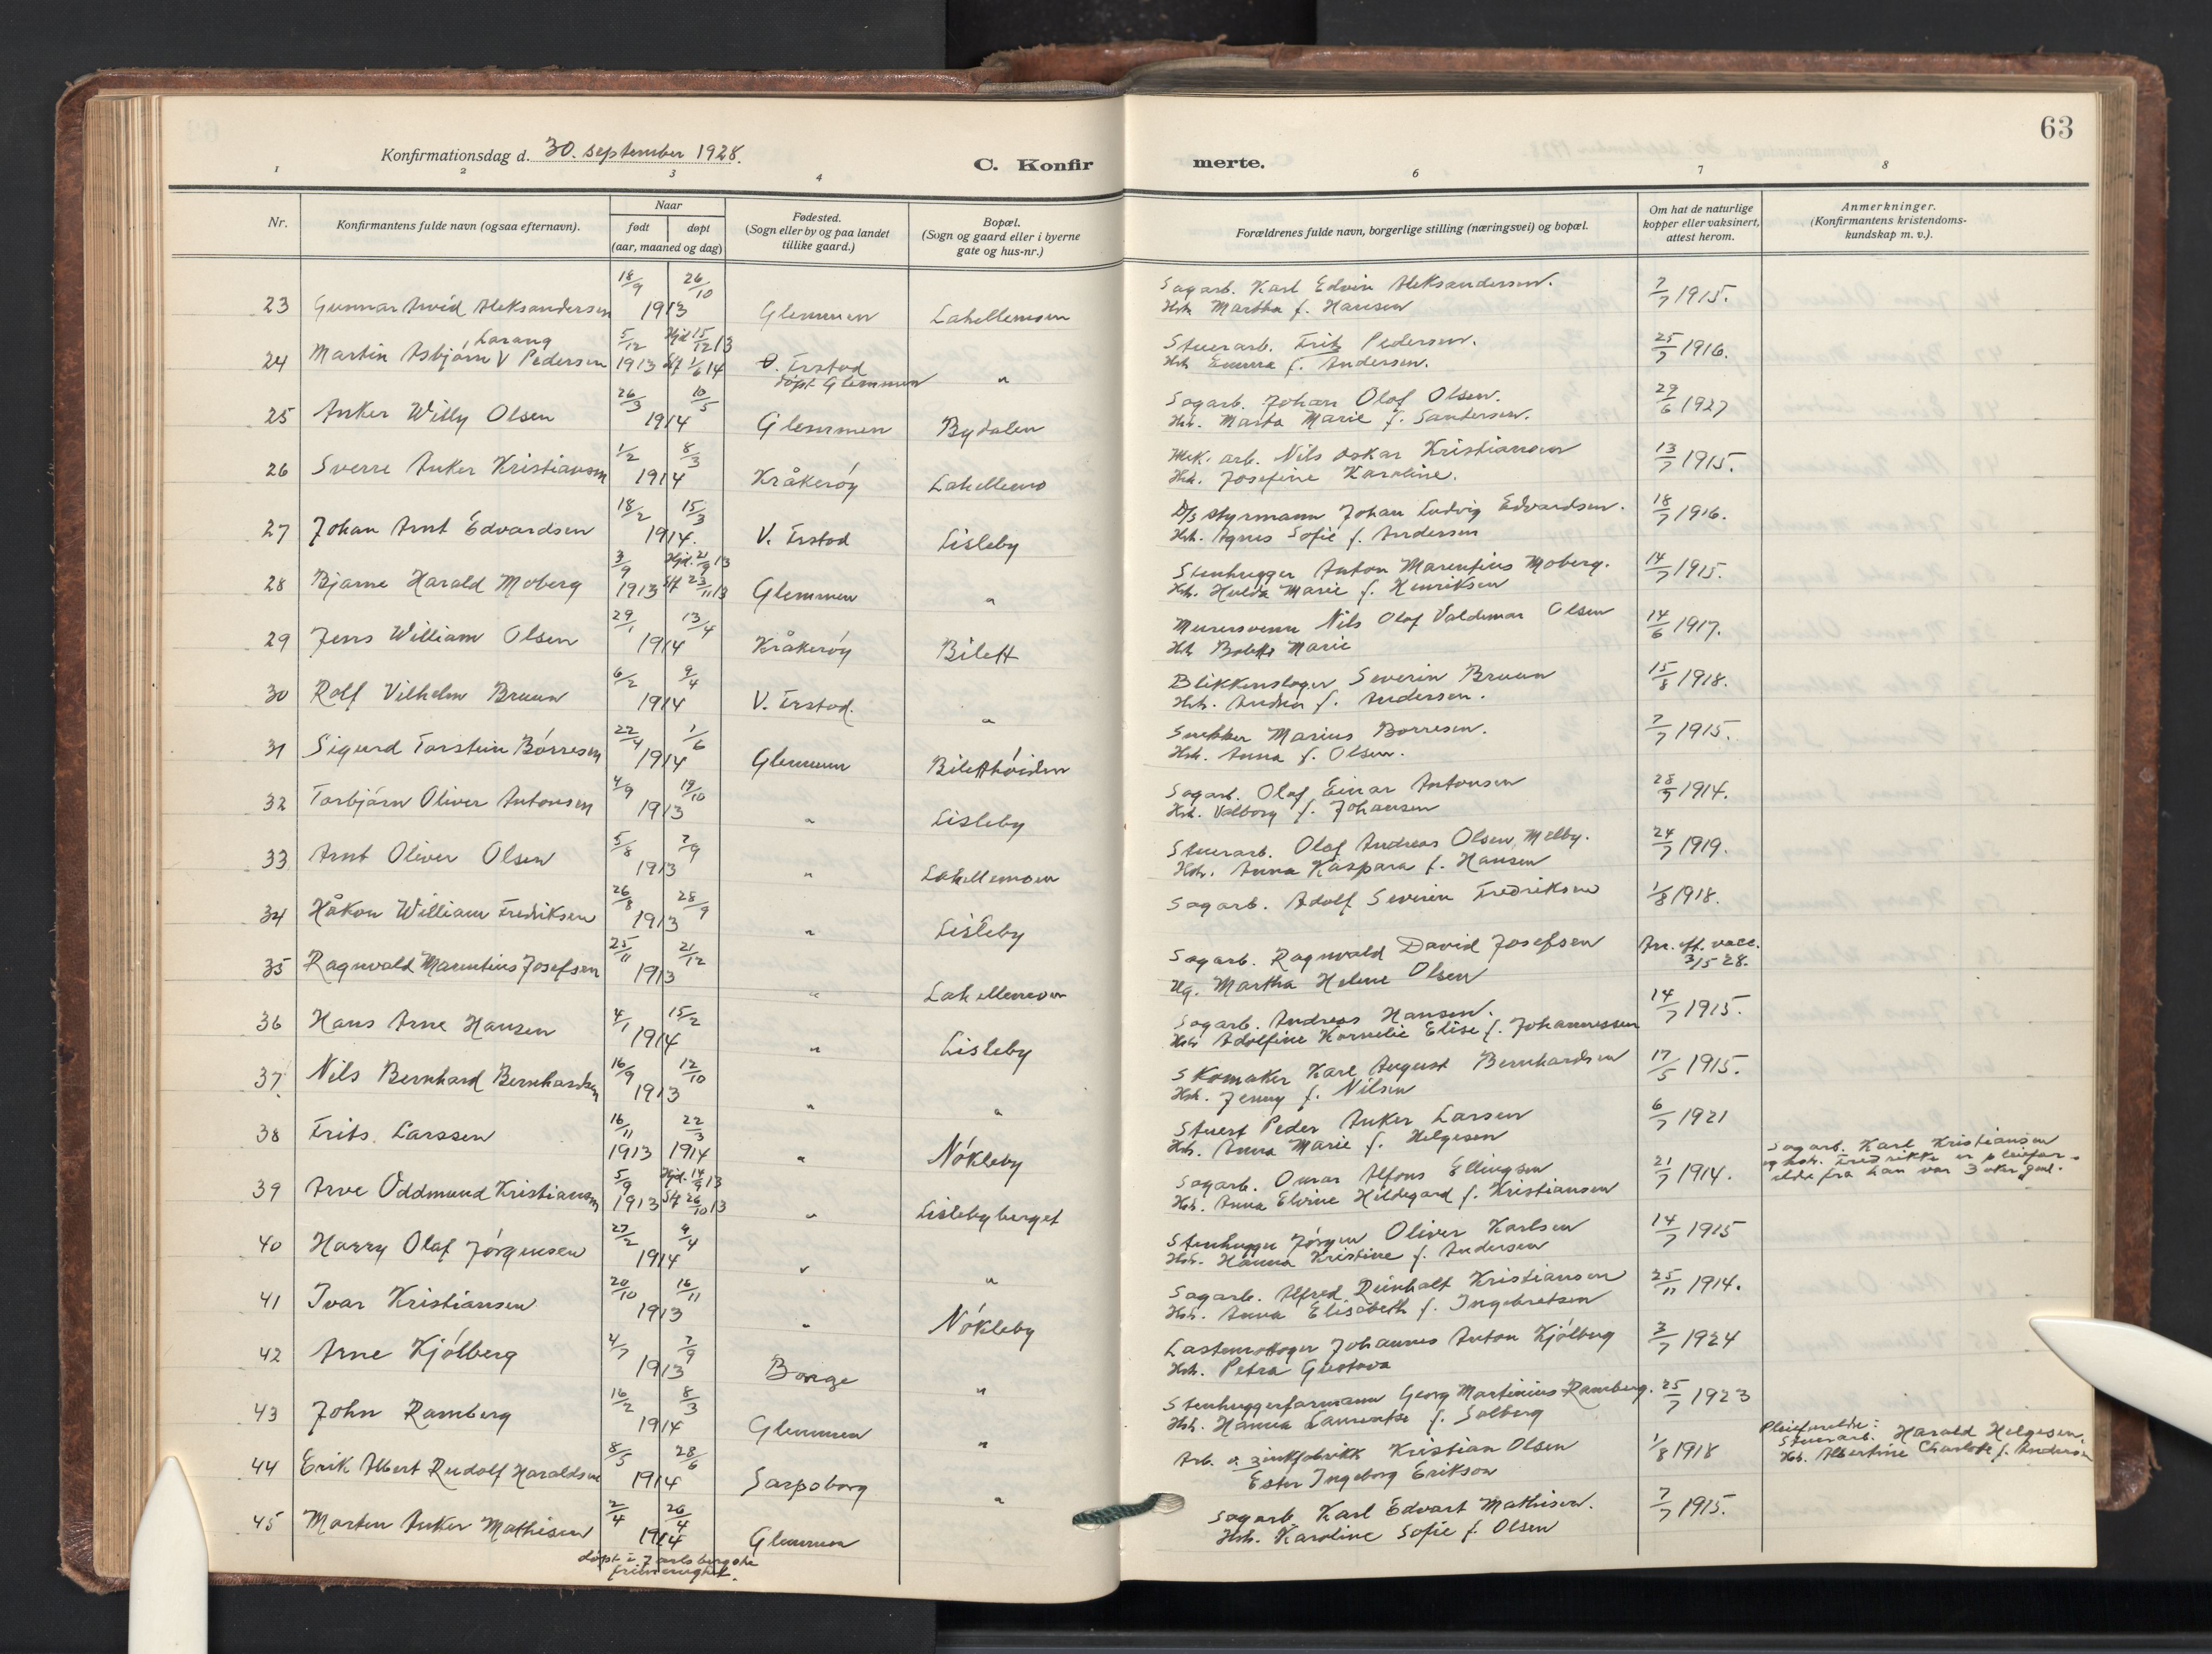 63
Konfirmationsdag d. 30. september 1928.
C. Konfir merte.
1 2 3 4 6 7 8
Nr.
Konfirmantens fulde navn (ogsaa efternavn).
Naar
født døpt
(aar, maaned og dag)
Fødested.
(Sogn eller by og paa landet
tillike gaard.)
Bopæl.
(Sogn og gaard eller i byerne
gate og hus-nr.)
Forældrenes fulde navn, borgerlige stilling (næringsvei) og bopæl.
Om hat de naturlige
kopper eller vaksinert,
attest herom.
Anmerkninger.
(Konfirmantens kristendoms-
kundskap m. v.).
23 Gunnar Arvid Aleksandersen 18/9 26/10 1913 Glemmen Lahellemoen
Sagarb. Karl Edvin Aleksandersen.
Hst. Martha f. Hansen
7/7 1915.
24 Martin Asbjørn V Pedersen 5/12 1913 Hjd. 15/12 13 Stf 1/6 14 Ø. Frstad
døpt Glemmen "
Stuerarb. Frits Pedersen.
Hst. Emma f. Andersen.
25/7 1916.
25 Anker Willy Olsen 26/3 10/5 1914 Glemmen Bydalen
Sagarb. Johan Olaf Olsen.
Hst. Marta Marie f. Sandersen.
29/6 1927
26 Sverre Anker Kristiansen 1/2 8/3 1914 Kråkerøy Lahellemo
Mek. arb. Nils Oskar Kristiansen
Hst. Josefine Karoline.
13/7 1915.
27 Johan Arnt Edvardsen 18/2 15/3 1914. V. Frstad Lisleby
D/s styrmann Johan Ludvig Edvardsen.
Hst. Agnes Sofie f. Andersen
18/7 1916.
28 Bjarne Harald Moberg 3/9 1913 Hjd. 21/9 13 Stf 23/11 13 Glemmen "
Stenhugger Anton Marentius Moberg.
Hst. Hulda Marie f. Henriksen
14/7 1915.
29 Jens William Olsen 29/1 13/4 1914 Kråkerøy Bilett
Murersvenn Nils Olaf Valdemar Olsen
Hst. Bolette Marie
14/6 1917.
30 Rolf Vilhelm Bruun 6/2 9/4 1914 V. Frstad. "
Blikkenslager Severin Bruun
Hst. Andrea f. Andersen.
15/8 1918.
31 Sigurd Torstein Børresen 22/4 1/6 1914 Glemmen Biletthøiden
Snekker Marius Børresen.
Hst. Anna f. Olsen.
7/7 1915.
32 Torbjørn Oliver Antonsen 4/9 19/10 1913 " Lisleby
Sagarb. Olaf Einar Antonsen
Hst. Valborg f. Johansen
28/7 1914.
33 Arnt Oliver Olsen 5/8 7/9 1913 " Lahellemoen
Stuerarb. Olaf Andreas Olsen, Melby.
Hst. Anna Kaspara f. Hansen
24/7 1919.
34 Håkon William Fredriksen 26/8 28/9 1913 " Lisleby
Sagarb. Adolf Severin Fredriksen
1/8 1918.
35 Ragnvald Marentius Josefsen 25/11 21/12 1913 " Lahellemoen
Sagarb. Ragnvald David Josefsen
Ug. Martha Helene Olsen
vacc.
3/5 28.
36 Hans Arne Hansen 4/1 15/2 1914 " Lisleby
Sagarb. Andreas Hansen.
Hst. Adolfine Kornelie Elise f. Johannessen
14/7 1915.
37. Nils Bernhard Bernhardsen 16/9 12/10 1913 " "
Skomaker Karl August Bernhardsen
Hst. Jenny f. Nilsen
17/5 1915.
38 Frits Larssen 16/11 1913 22/3 1914 " Nøkleby
Stuert Peder Anker Larsen
Hst. Anna Marie f. Helgesen
6/7 1921
39 Arve Oddmund Kristiansen 5/9 1913 Hjd. 14/9 13 Stf 26/10 13 " Lislebyberget
Sagarb. Alfons Ellingsen
Hst. Anna Elvine Hildegard f. Kristiansen
21/7 1914.
Sagarb. Karl Kristiansen
og hst. Fredrikke er pleiefor-
eldre fra han var 3 uker gml.
40 Harry Olaf Jørgensen 27/2 9/4 1914 " "
Stenhugger Jørgen Oliver Karlsen
Hst. Hanna Kristine f. Andersen
14/7 1915
41 Ivar Kristiansen 20/10 16/11 1913 " Nøkleby
Sagarb. Alfred Reinholt Kristiansen
Hst. Anna Elisabeth f. Ingebretsen
25/11 1914.
42 Arne Kjølberg 4/7 7/9 1913 Borge "
Lastemottager Johannes Anton Kjølberg
Hst. Petra Gustava
3/7 1924
43 John Ramberg 16/2 8/3 1914 Glemmen "
Stenhuggerformann Georg Martinius Ramberg.
Hst. Hanna Laurentse f. Solberg
25/7 1923
44 Erik Albert Rudolf Haraldsen 8/5 28/6 1914 Sarpsborg "
Arb. v. zinkfabrikk Kristian Olsen
Ester Ingeborg Erikson
1/8 1918
Pleieforeldre:
Stuerarb. Harald Helgesen.
Hst. Albertine Charlotte f. Andersen
45 Morten Anker Mathisen 2/4 26/4 1914 Glemmen
døpt i Jarlsbergske
frimenighet.
Sagarb Karl Edvart Mathisen.
Hst. Karoline Sofie f. Olsen
7/7 1915.